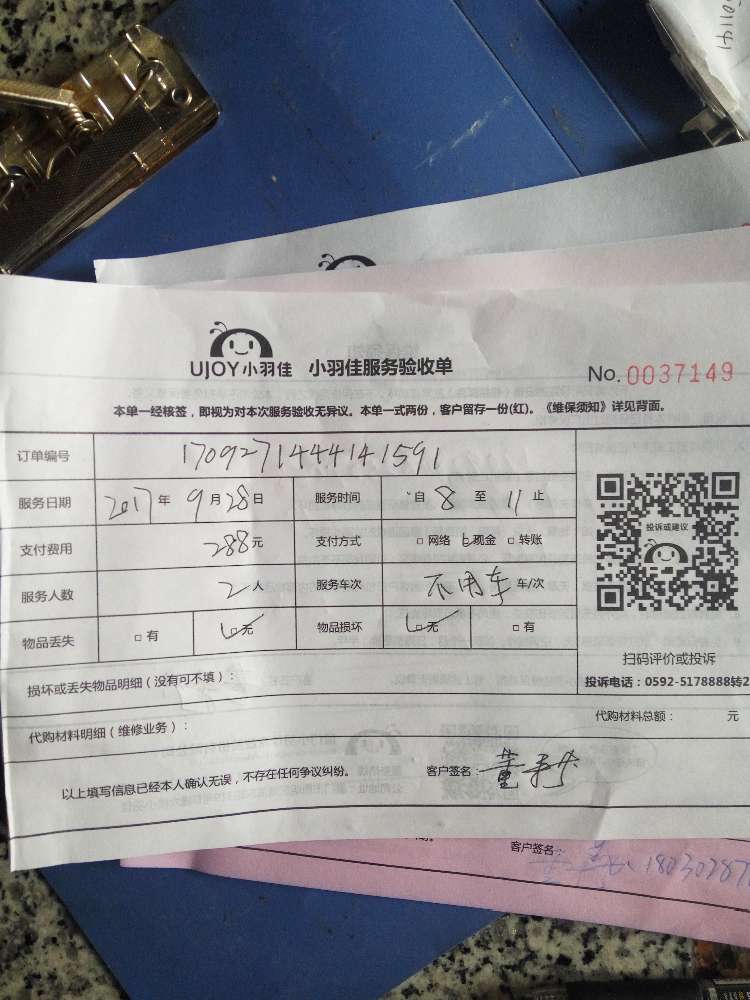 501141
UJOY小羽佳 小羽佳服务验收单
No. 0037149
本单一经核签，即视为对本次服务验收无异议。本单一式两份，客户留存一份(红)。《维保须知》详见背面。
订单编号 1709271444141591
服务日期 2017年 9月28日 服务时间 自 8 至 11 止
支付费用 288元 支付方式 □ 网络 □ 现金 □ 转账
服务人数 2人 服务车次 不用车 车/次
物品丢失 □ 有 □ 无 物品损坏 □ 无 □ 有
投诉或建议
扫码评价或投诉
投诉电话：0592-5178888转2
损坏或丢失物品明细（没有可不填）：
代购材料明细（维修业务）： 代购材料总额： 元
以上填写信息已经本人确认无误，不存在任何争议纠纷。 客户签名： 董
客户签名： 1803028